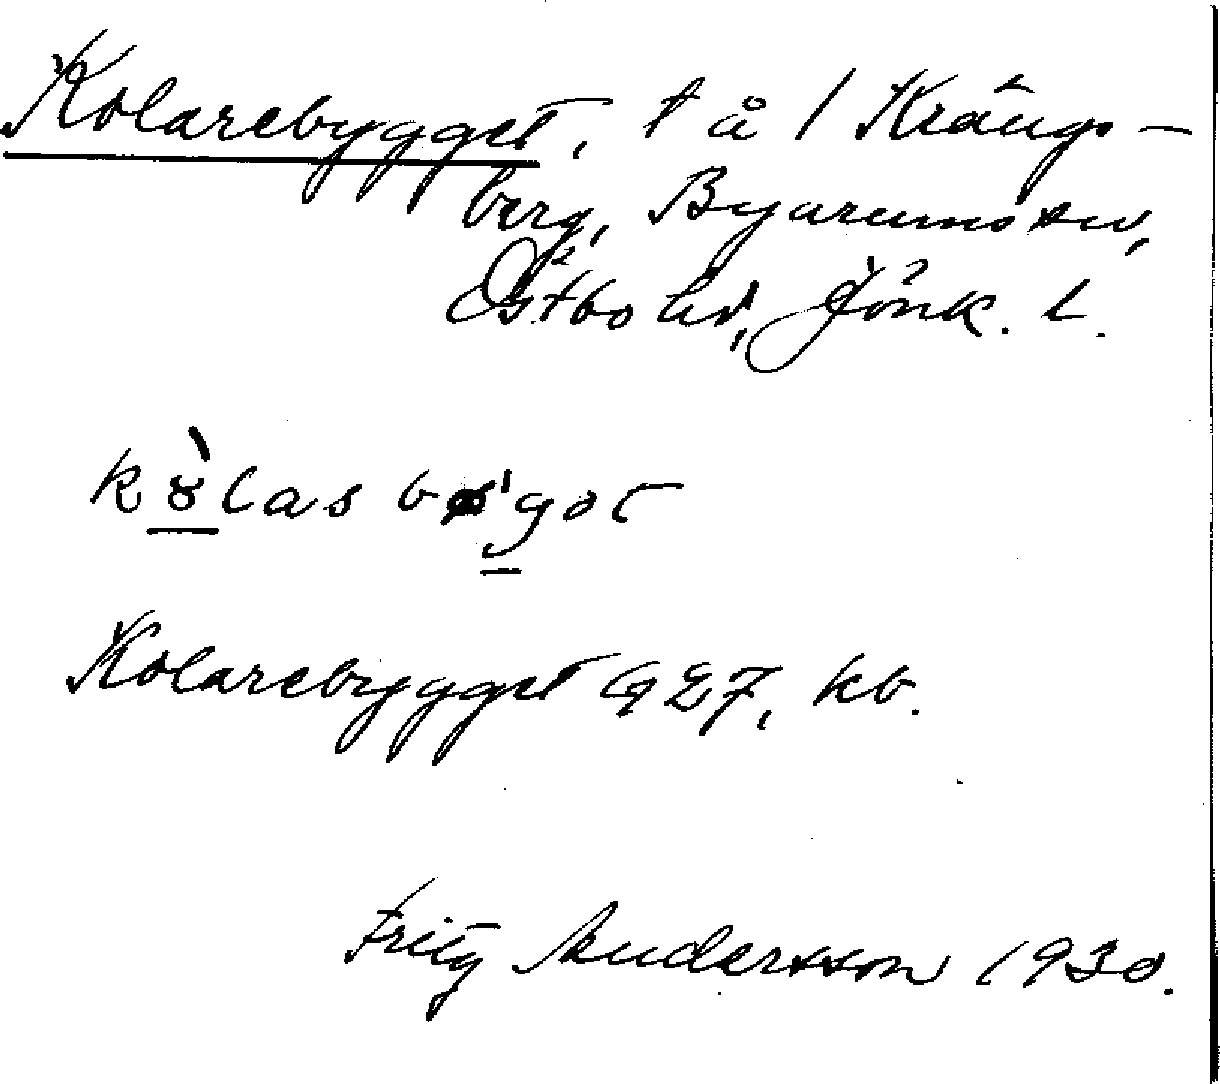 Kolarebygget, t å 1 Krängs-
berg, Byarums sn,
Östbo hd, Jönk. l.
Kolarebygget G27, kb.
Fritz Andersson 1930.